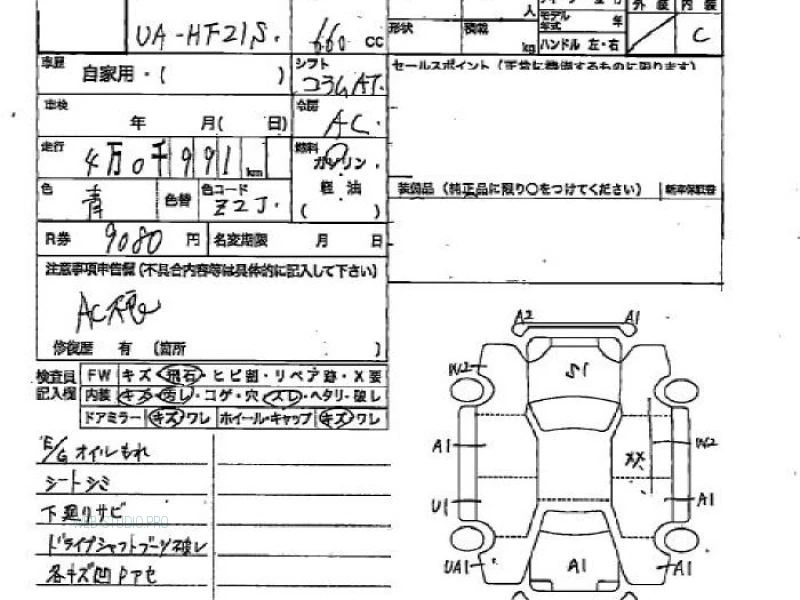 UA-HF21S. 660 cc
人
モデル年式 年
外装 内装
形状 積載 kg ハンドル 左・右 C
車歴 自家用・( )
シフト コラムAT.
セールスポイント (正常に機能するものに限ります)
車検 年 月( 日)
冷房 AC.
走行 4万0千991 km
燃料 ガソリン・
軽油
( )
色 青 色替 色コード Z2J.
装備品 (純正品に限り○をつけてください) 新車保証書
R券 9080 円 名変期限 月 日
注意事項申告欄 (不具合内容等は具体的に記入して下さい)
修復歴 有 (箇所 )
検査員記入欄
FW キズ・飛石・ヒビ割・リペア跡・X要
内装 キズ・汚レ・コゲ・穴・スレ・ヘタリ・破レ
ドアミラー キズ ワレ ホイール・キャップ キズ ワレ
E/G オイルもれ
シートシミ
下廻りサビ
ドライブシャフトブーツ破レ
各キズ凹
A2 A1
S1
W2
A1 XX W2
U1 A1
UA1 A1 A1